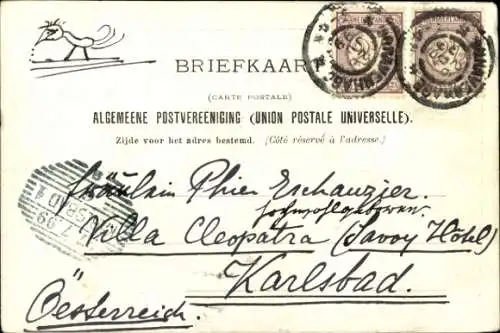 BRIEFKAART
(CARTE POSTALE)
ALGEMEENE POSTVEREENIGING (UNION POSTALE UNIVERSELLE).
Zijde voor het adres bestemd. (Côté réservé à l'adresse.)
Fräulein Phien Eschauzier.
hochwohlgeboren.
Villa Cleopatra (Savoy Hôtel)
Karlsbad.
Oesterreich.
7.99